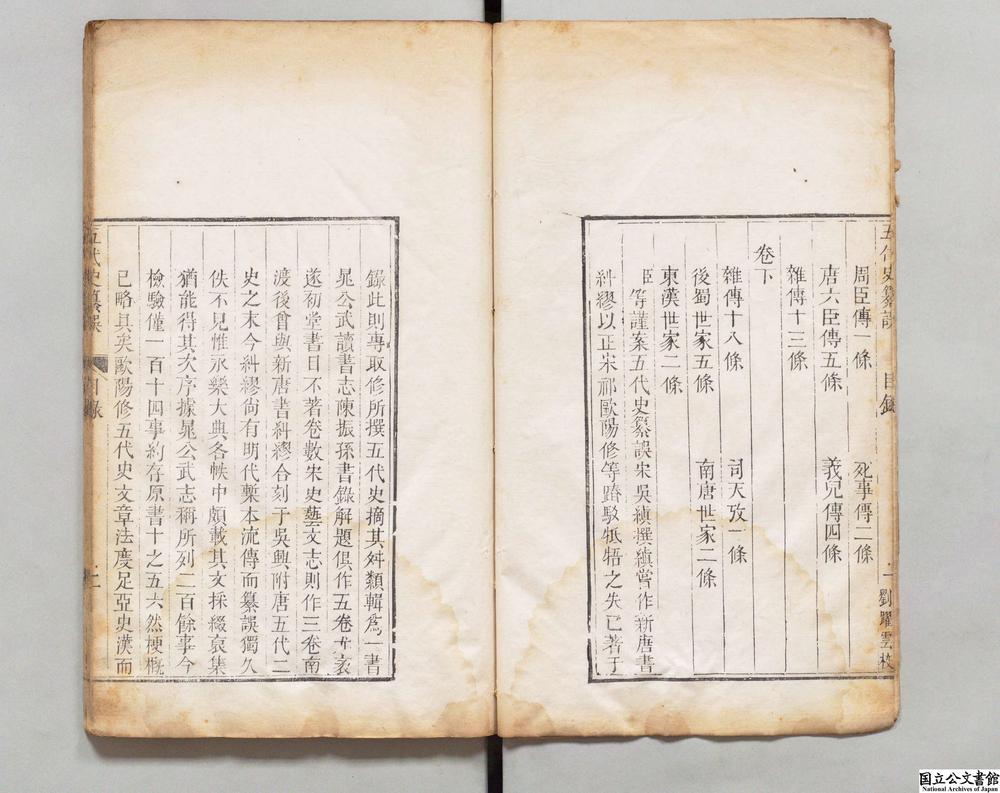 五代史纂誤　目錄　一　劉躍雲校
周臣傳一條　死事傳二條
唐六臣傳五條　義兒傳四條
雜傳十三條
卷下
雜傳十八條　司天攷一條
後蜀世家五條　南唐世家二條
東漢世家二條
臣等謹案五代史纂誤宋吳縝撰縝嘗作新唐書
糾繆以正宋祁歐陽修等踳駁牴牾之失已著于
錄此則專取修所撰五代史摘其舛類輯爲一書
晁公武讀書志陳振孫書錄解題俱作五卷尤袤
遂初堂書目不著卷數宋史藝文志則作三卷南
渡後曾與新唐書糾繆合刻于吳興附唐五代二
史之末今糾繆尙有明代槧本流傳而纂誤獨久
佚不見惟永樂大典各帙中頗載其文採綴裒集
猶能得其次序據晁公武志稱所列二百餘事今
檢驗僅一百十四事約存原書十之五六然梗槪
已略具矣歐陽修五代史文章法度足亞史漢而
五代史纂誤　目錄　二
国立公文書館
National Archives of Japan